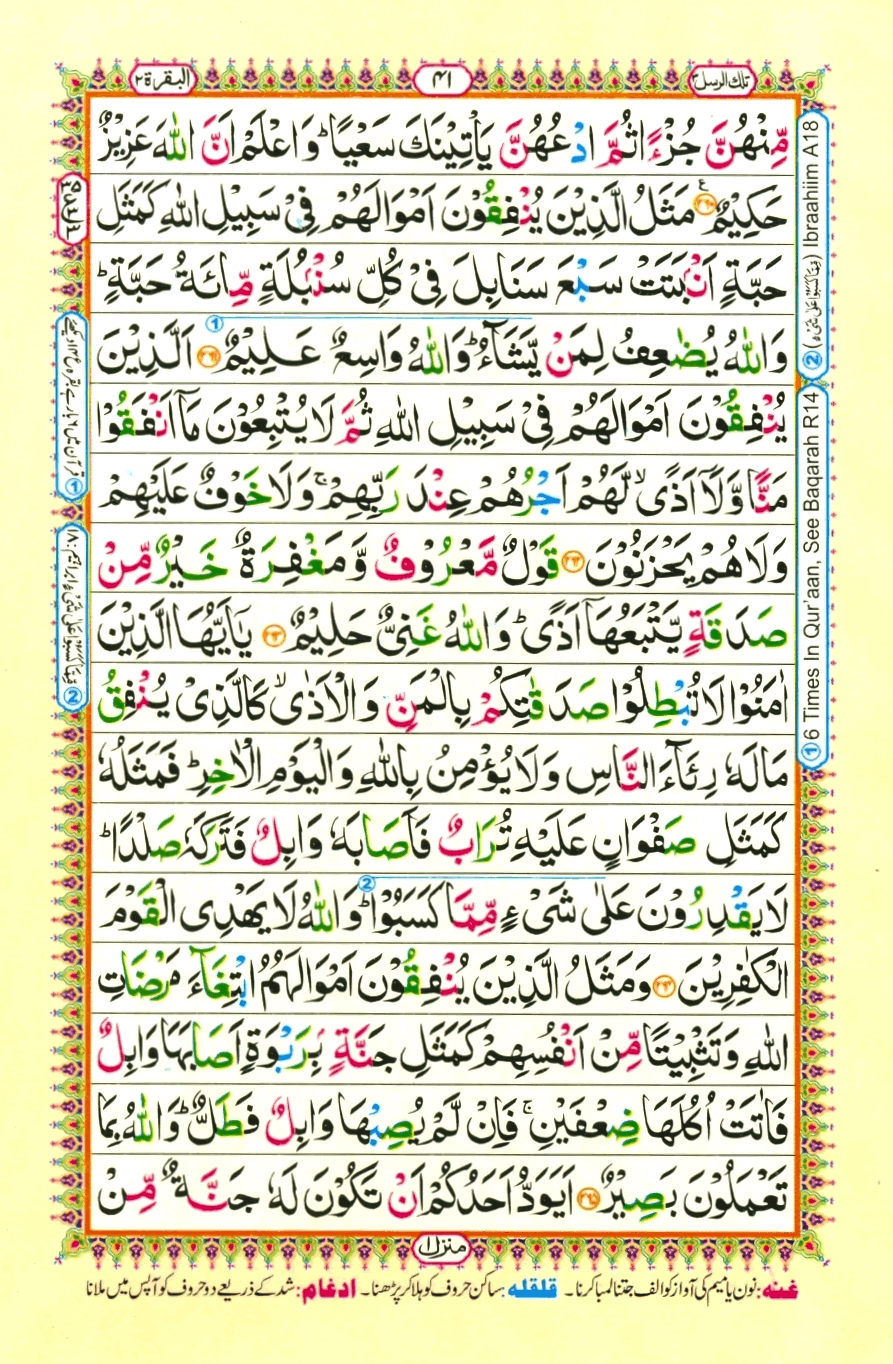 تلك الرسل ٣
٤١
البقرة ٢
مِّنْهُنَّ جُزْءًا ثُمَّ ادْعُهُنَّ يَاْتِيْنَكَ سَعْيًا ؕ وَاعْلَمْ اَنَّ اللّٰهَ عَزِيْزٌ
حَكِيْمٌ ﴿۲۶۰﴾ ع مَثَلُ الَّذِيْنَ يُنْفِقُوْنَ اَمْوَالَهُمْ فِيْ سَبِيْلِ اللّٰهِ كَمَثَلِ
حَبَّةٍ اَنْۢبَتَتْ سَبْعَ سَنَابِلَ فِيْ كُلِّ سُنْۢبُلَةٍ مِّائَةُ حَبَّةٍ ؕ
وَاللّٰهُ يُضٰعِفُ لِمَنْ يَّشَآءُ ؕ وَاللّٰهُ وَاسِعٌ عَلِيْمٌ ﴿۲۶۱﴾ اَلَّذِيْنَ
يُنْفِقُوْنَ اَمْوَالَهُمْ فِيْ سَبِيْلِ اللّٰهِ ثُمَّ لَا يُتْبِعُوْنَ مَآ اَنْفَقُوْا
مَنًّا وَّلَآ اَذًى ۙ لَّهُمْ اَجْرُهُمْ عِنْدَ رَبِّهِمْ ۚ وَلَا خَوْفٌ عَلَيْهِمْ
وَلَا هُمْ يَحْزَنُوْنَ ﴿۲۶۲﴾ قَوْلٌ مَّعْرُوْفٌ وَّمَغْفِرَةٌ خَيْرٌ مِّنْ
صَدَقَةٍ يَّتْبَعُهَآ اَذًى ؕ وَاللّٰهُ غَنِيٌّ حَلِيْمٌ ﴿۲۶۳﴾ يٰٓاَيُّهَا الَّذِيْنَ
اٰمَنُوْا لَا تُبْطِلُوْا صَدَقٰتِكُمْ بِالْمَنِّ وَالْاَذٰى ۙ كَالَّذِيْ يُنْفِقُ
مَالَهٗ رِئَآءَ النَّاسِ وَلَا يُؤْمِنُ بِاللّٰهِ وَالْيَوْمِ الْاٰخِرِ ؕ فَمَثَلُهٗ
كَمَثَلِ صَفْوَانٍ عَلَيْهِ تُرَابٌ فَاَصَابَهٗ وَابِلٌ فَتَرَكَهٗ صَلْدًا ؕ
لَا يَقْدِرُوْنَ عَلٰى شَيْءٍ مِّمَّا كَسَبُوْا ؕ وَاللّٰهُ لَا يَهْدِي الْقَوْمَ
الْكٰفِرِيْنَ ﴿۲۶۴﴾ وَمَثَلُ الَّذِيْنَ يُنْفِقُوْنَ اَمْوَالَهُمُ ابْتِغَآءَ مَرْضَاتِ
اللّٰهِ وَتَثْبِيْتًا مِّنْ اَنْفُسِهِمْ كَمَثَلِ جَنَّةٍۭ بِرَبْوَةٍ اَصَابَهَا وَابِلٌ
فَاٰتَتْ اُكُلَهَا ضِعْفَيْنِ ۚ فَاِنْ لَّمْ يُصِبْهَا وَابِلٌ فَطَلٌّ ؕ وَاللّٰهُ بِمَا
تَعْمَلُوْنَ بَصِيْرٌ ﴿۲۶۵﴾ اَيَوَدُّ اَحَدُكُمْ اَنْ تَكُوْنَ لَهٗ جَنَّةٌ مِّنْ
منزل ١
① 6 Times In Qur'aan, See Baqarah R14
② (مِمَّا كَسَبُوْا عَلٰى شَيْءٍ) Ibraahiim A18
② مِمَّا كَسَبُوْا عَلٰى شَيْءٍ ابراہیم:١٨
غنہ: نون یا میم کی آواز کو الف جتنا لمبا کرنا۔ قلقلہ: ساکن حروف کو ہلا کر پڑھنا۔ ادغام: شد کے ذریعے دو حروف کو آپس میں ملانا